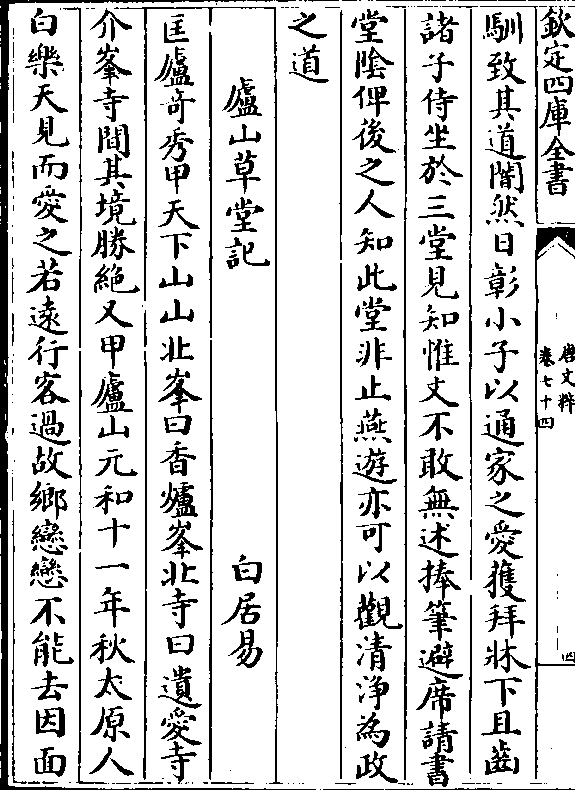 欽定四庫全書
唐文粹
卷七十四
四
馴致其道闇然日彰小子以通家之愛獲拜牀下且齒
諸子侍坐於三堂見知惟文不敢無述捧筆避席請書
堂隂俾後之人知此堂非止燕遊亦可以觀清浄為政
之道
廬山草堂記　白居易
匡廬奇秀甲天下山山北峯曰香爐峯北寺曰遺愛寺
介峯寺間其境勝絶又甲廬山元和十一年秋太原人
白樂天見而愛之若遠行客過故鄉戀戀不能去因面